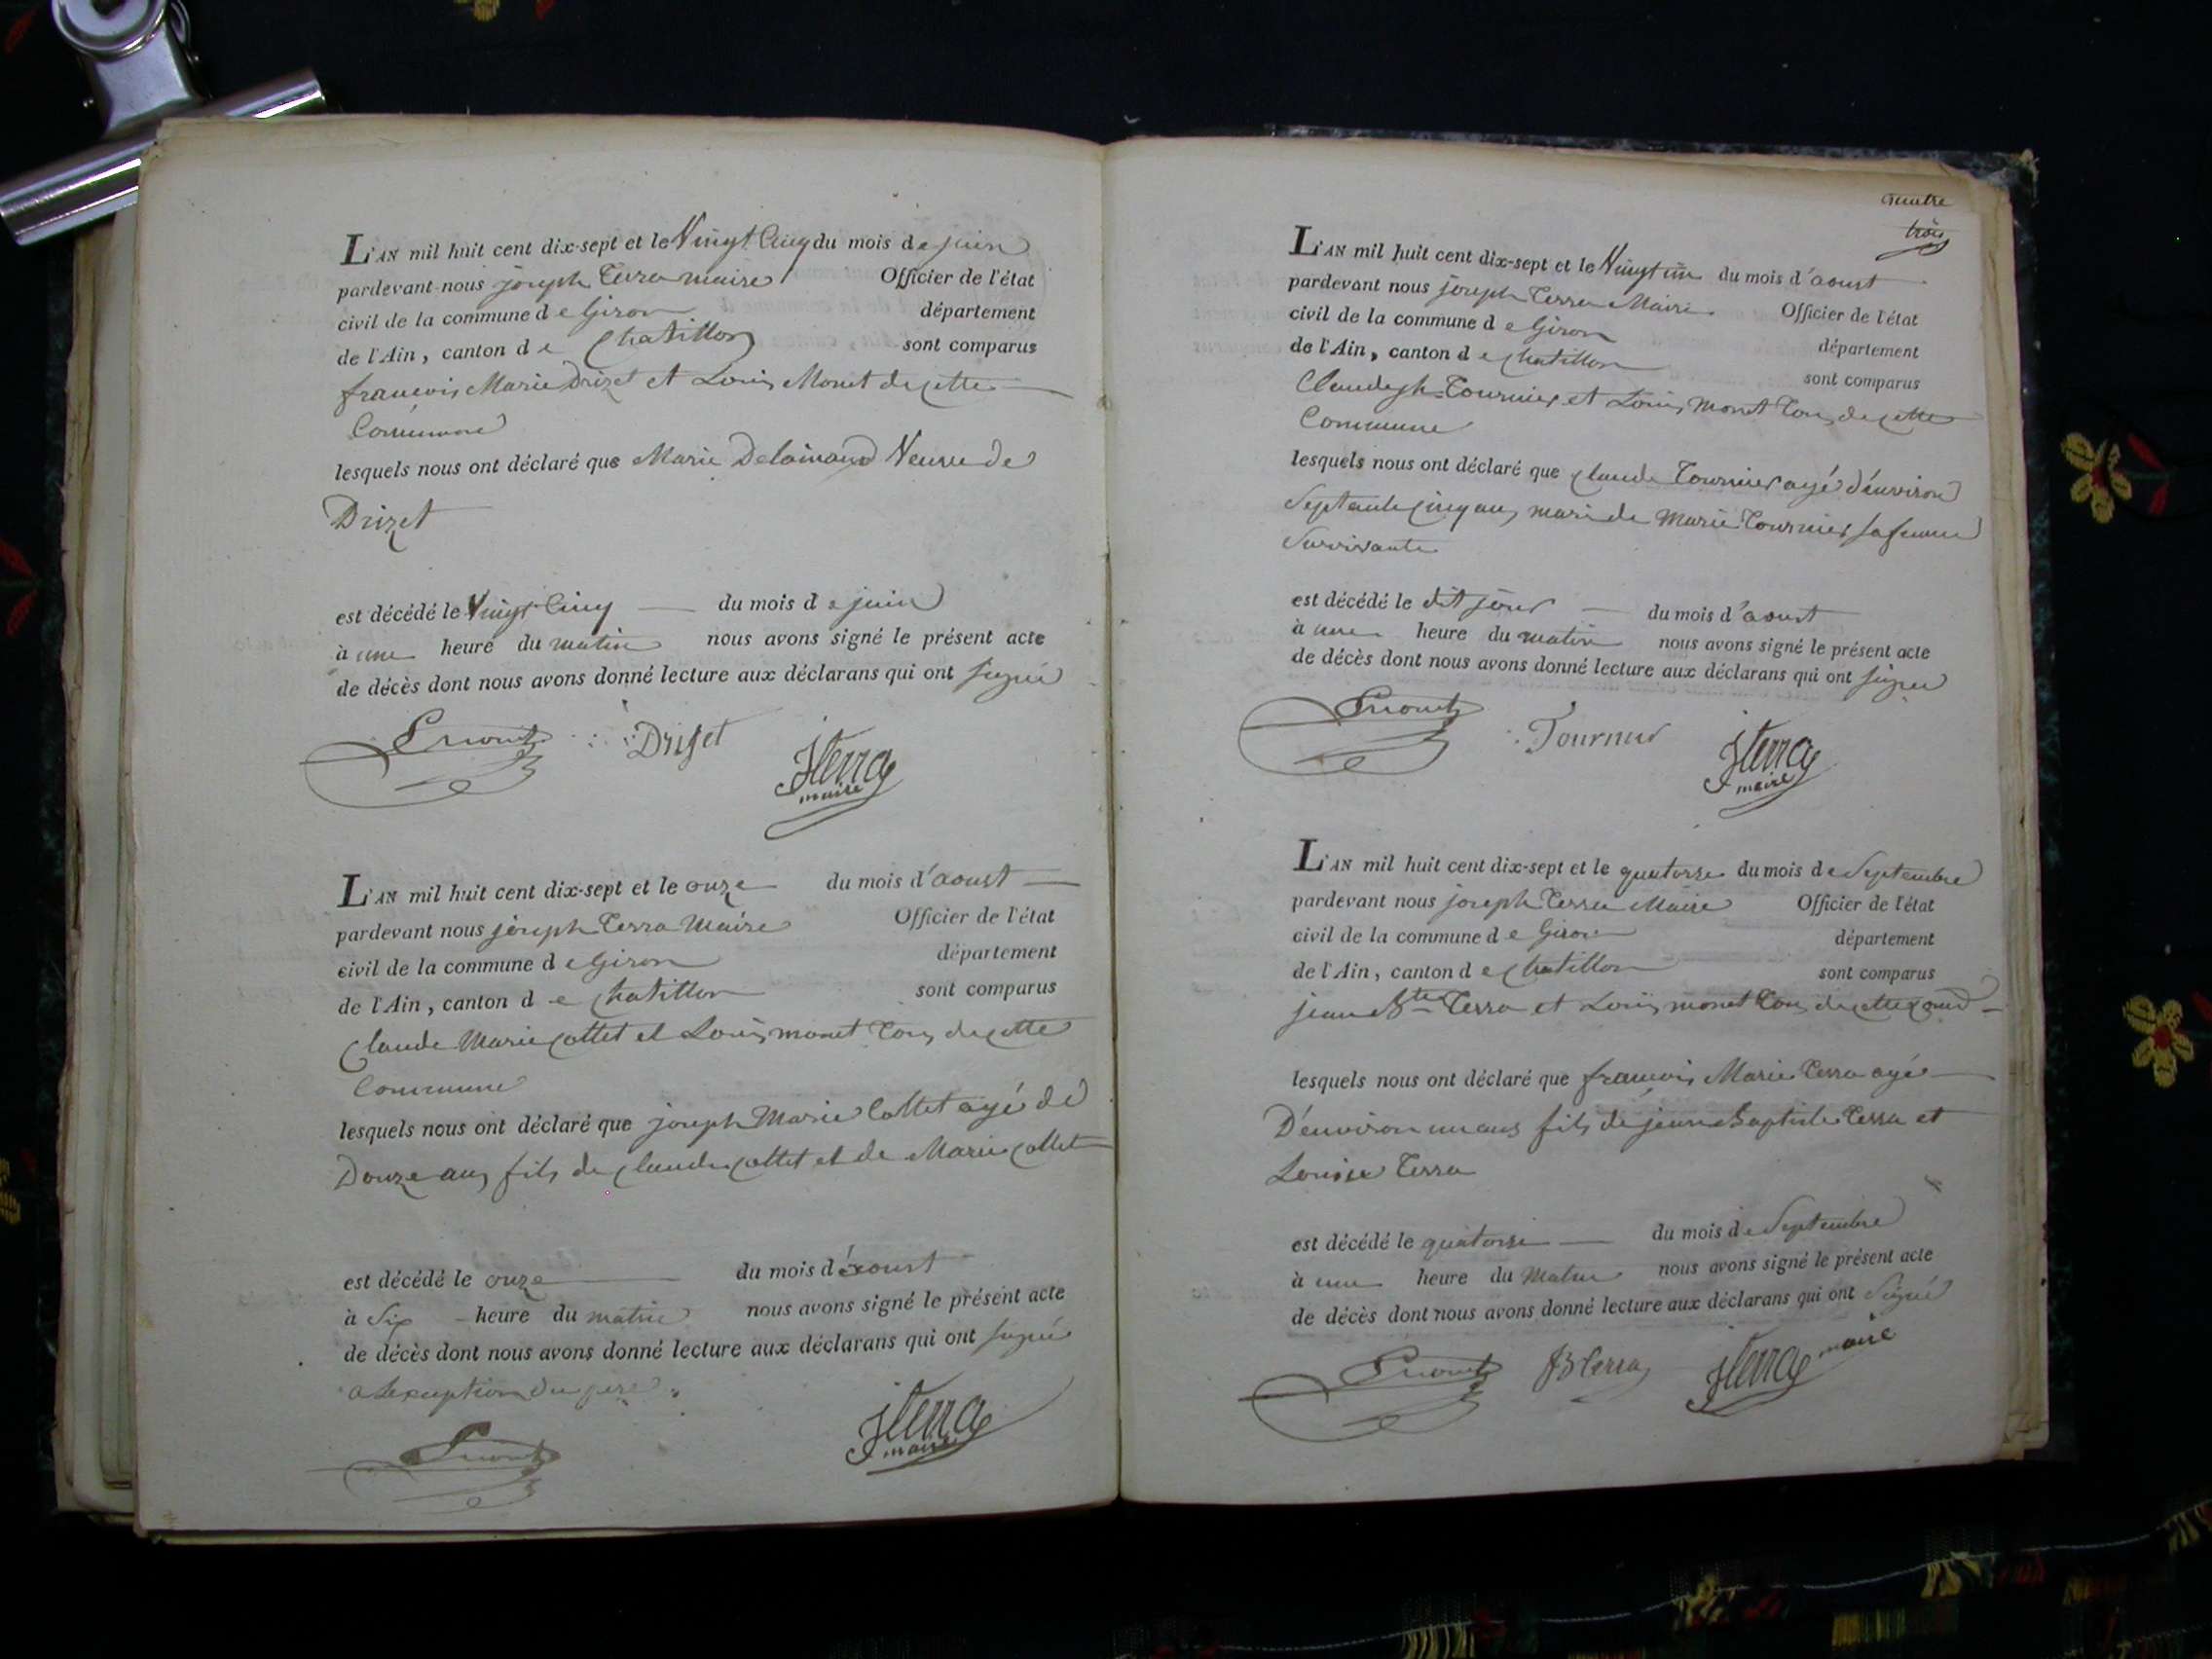 L'AN mil huit cent dix-sept et le Vingt Cinq du mois de juin
pardevant nous joseph Terra maire Officier de l'état
civil de la commune de Giron département
de l'Ain, canton de Chatillon sont comparus
francois Marie Drizet et Louis Monet de cette
Commune
lesquels nous ont déclaré que Marie Veuve de
Drizet
est décédé le Vingt Cinq du mois de juin
à une heure du matin nous avons signé le présent acte
de décès dont nous avons donné lecture aux déclarans qui ont signé
Drizet
JTerra
maire
L'AN mil huit cent dix-sept et le onze du mois d'aoust
pardevant nous joseph Terra Maire Officier de l'état
civil de la commune de Giron département
de l'Ain, canton de Chatillon sont comparus
Claude Marie Collet et Louis monet Tous de cette
Commune
lesquels nous ont déclaré que joseph Marie Collet agé de
Douze ans fils de Claude Collet et de Marie Collet
est décédé le onze du mois d'aoust
à Six heure du matin nous avons signé le présent acte
de décès dont nous avons donné lecture aux déclarans qui ont signé
a Lexception du pere
JTerra
maire
quatre
trois
L'AN mil huit cent dix-sept et le Vingt un du mois d'aoust
pardevant nous joseph Terra Maire Officier de l'état
civil de la commune de Giron département
de l'Ain, canton de Chatillon sont comparus
Claude jh Tournier et Louis monet Tous de cette
Commune
lesquels nous ont déclaré que Claude Tournier agé d'environ
Septante Cinq ans mari de Marie Tournier sa femme
Survivante
est décédé le dit jour du mois d'aoust
à une heure du matin nous avons signé le présent acte
de décès dont nous avons donné lecture aux déclarans qui ont signé
Tournier
JTerra
maire
L'AN mil huit cent dix-sept et le quatorze du mois de Septembre
pardevant nous joseph Terra Maire Officier de l'état
civil de la commune de Giron département
de l'Ain, canton de Chatillon sont comparus
jean Bte Terra et Louis monet Tous de cette
lesquels nous ont déclaré que francois Marie Terra agé
D'environ un ans fils de jean Baptiste Terra et
Louise Terra
est décédé le quatorze du mois de Septembre
à une heure du Matin nous avons signé le présent acte
de décès dont nous avons donné lecture aux déclarans qui ont Signé
JB Terra JTerra maire